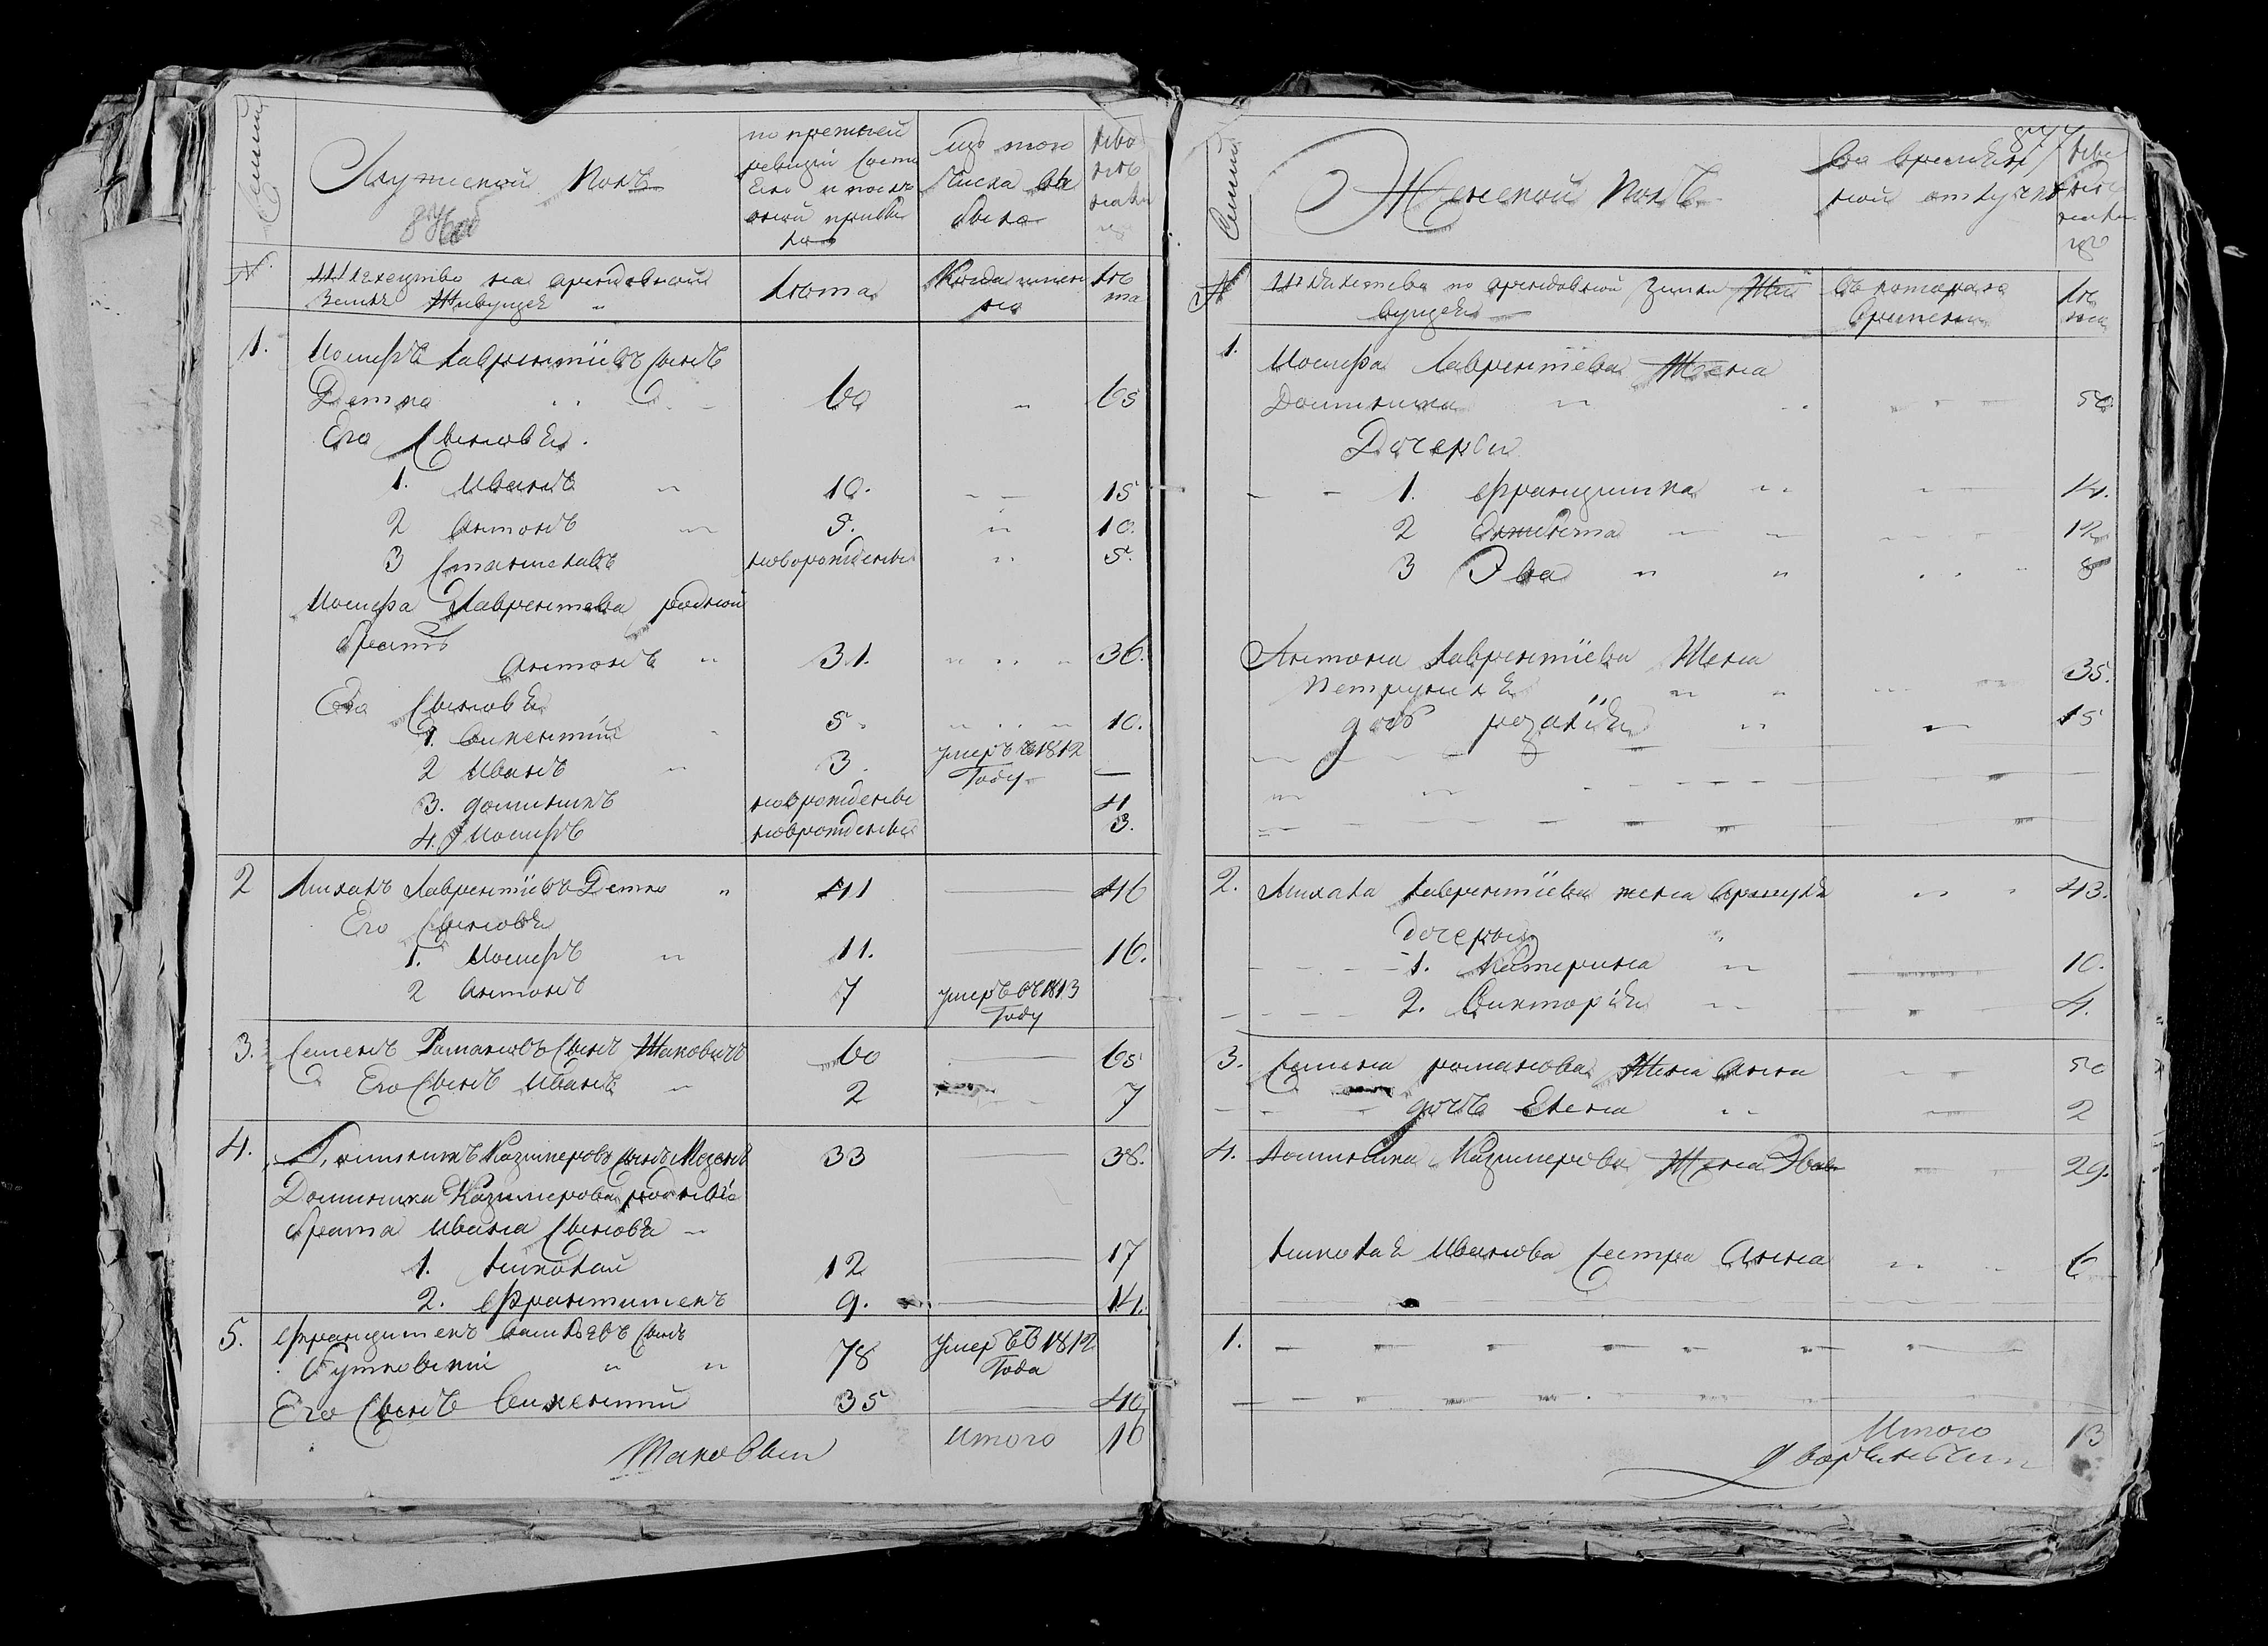 Семьи
Мужеской полъ
876 об
по прежней
ревизіи состо
яло и после
оной прибы
ло
изъ того
числа вы
было
ныне
на лицо
№.
Шляхетство на арендовной
Земле Живущее
Лета
Когда именно
Лета
1.
Иосифъ Лаврентіевъ сынъ
Детко 60 65
Его Сыновья.
1. Иванъ 10. 15
2 Антонъ 5. 10.
3 Станиславъ новорожденные 5.
Иосифа Лаврентева родной
братъ
Антонъ 31. 36.
Его Сыновья
1. Викентій 5. 10.
2 Иванъ 3. умеръ въ 1812
Году
3. доминикъ новорожденны 4
4. Иосифъ новорожденны 3.
2 Михалъ Лаврентіевъ Детко 41 46
Его Сыновья
1. Иосифъ 11. 16.
2 Антонъ 7 умеръ въ 1813
Году
3. Семенъ Романовъ Сынъ Жакович 60 65
Его Сынъ Иванъ 2 7
4. Доминикъ Казимеровъ сынъ 33 38.
Доминика Казимерова родныя
брата Ивана Сыновья
1. Николай 12 17
2. Франтишекъ 9. 14.
5. Францишекъ Сынъ
Бутковскій 78 умеръ въ 1812
Года
Его Сынъ Викентій 35 40
Итого 16
Семьи
Женской полъ
877
Во времен
ной отлучке
№
Шляхетства по арендовной Земли Жи
вущея
Съ которого
Времени
Лета
1. Иосифа Лаврентіева Жена
Доминика 50
Дочери
1. Францишка 14.
2 Елжбета 12
3 Эва 8
Антона Лаврентіева Жена
Петрунеля 35.
дочь розалія 15
2. Михала Лаврентіева жена 43.
дочерьи
1. Катерина 10.
2. Викторія 4.
3. Семена романова Жена Анна 50
дочь Елена 2
4. Доминика Казимерова Жена Эва 29.
Николая Иванова Сестра Анна 6
1.
Итого 13